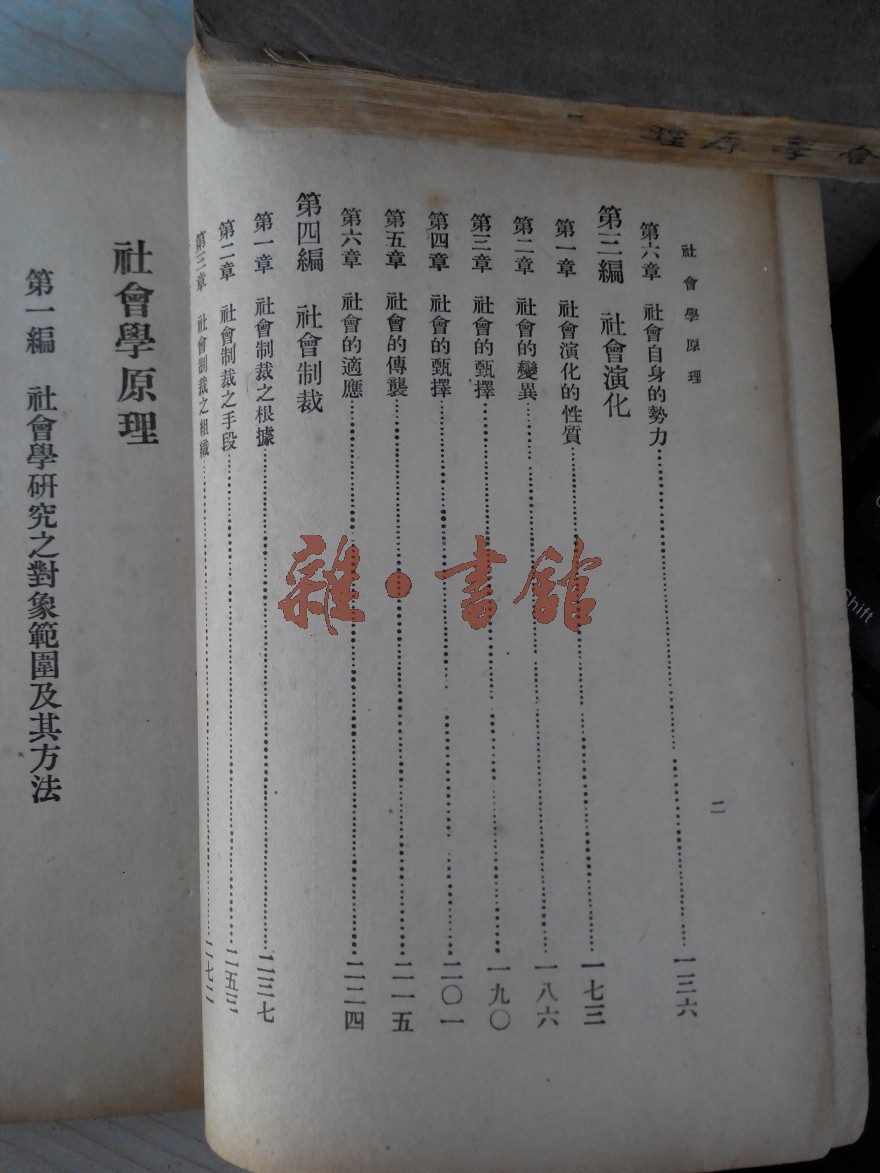 會學原理
社會學原理
二
第六章 社會自身的勢力……一三六
第三編 社會演化
第一章 社會演化的性質……一七三
第二章 社會的變異……一八六
第三章 社會的甄擇……一九〇
第四章 社會的甄擇……二〇一
第五章 社會的傳襲……二一五
第六章 社會的適應……二二四
第四編 社會制裁
第一章 社會制裁之根據……二三七
第二章 社會制裁之手段……二五三
第三章 社會制裁之組織……二七二
社會學原理
第一編 社會學研究之對象範圍及其方法
雜·書館
Shift